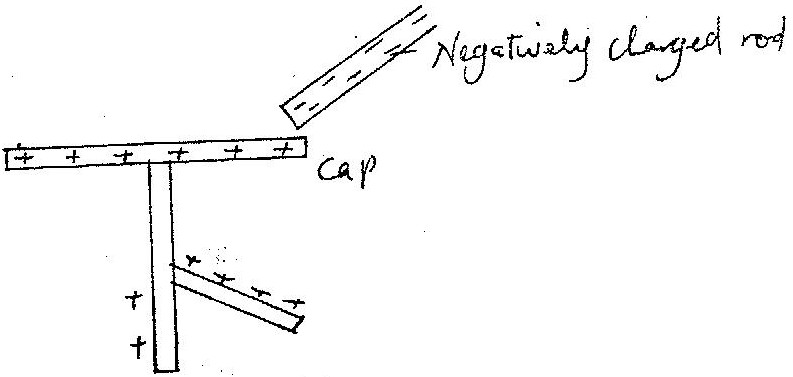 Negatively charged rod
cap